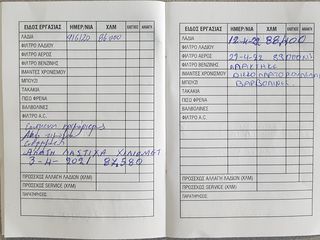 ΕΙΔΟΣ ΕΡΓΑΣΙΑΣ ΗΜΕΡ/ΝΙΑ ΧΛΜ ΕΛΕΓΧΟΣ ΑΛΛΑΓΗ
ΛΑΔΙΑ 86000
ΦΙΛΤΡΟ ΛΑΔΙΟΥ
ΦΙΛΤΡΟ ΑΕΡΟΣ
ΦΙΛΤΡΟ ΒΕΝΖΙΝΗΣ
ΙΜΑΝΤΕΣ ΧΡΟΝΙΣΜΟΥ
ΜΠΟΥΖΙ
ΤΑΚΑΚΙΑ
ΠΙΣΩ ΦΡΕΝΑ
ΒΑΛΒΟΛΙΝΕΣ
ΦΙΛΤΡΟ A.C.
ΑΛΑΓΗ ΛΑΣΤΙΧΑ
3-4-2021 87,580
ΠΡΟΣΕΧΩΣ ΑΛΛΑΓΗ ΛΑΔΙΩΝ (ΧΛΜ)
ΠΡΟΣΕΧΩΣ SERVICE (ΧΛΜ)
ΠΑΡΑΤΗΡΗΣΕΙΣ
ΕΙΔΟΣ ΕΡΓΑΣΙΑΣ ΗΜΕΡ/ΝΙΑ ΧΛΜ ΕΛΕΓΧΟΣ ΑΛΛΑΓΗ
ΛΑΔΙΑ 12-4-22 88,400
ΦΙΛΤΡΟ ΛΑΔΙΟΥ
ΦΙΛΤΡΟ ΑΕΡΟΣ
ΦΙΛΤΡΟ ΒΕΝΖΙΝΗΣ
ΙΜΑΝΤΕΣ ΧΡΟΝΙΣΜΟΥ
ΜΠΟΥΖΙ ΒΑΛΒΟΛΙΝΕΣ
ΤΑΚΑΚΙΑ
ΠΙΣΩ ΦΡΕΝΑ
ΒΑΛΒΟΛΙΝΕΣ
ΦΙΛΤΡΟ A.C.
ΠΡΟΣΕΧΩΣ ΑΛΛΑΓΗ ΛΑΔΙΩΝ (ΧΛΜ)
ΠΡΟΣΕΧΩΣ SERVICE (ΧΛΜ)
ΠΑΡΑΤΗΡΗΣΕΙΣ